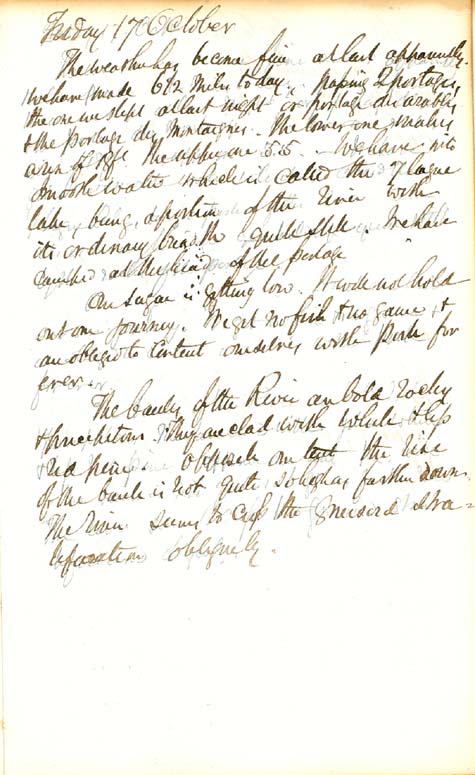 Friday 17 October
The weather has become fine at last apparently.
We have made 6 1/2 miles today, passing 2 portages,
the one we slept at last night or portage
& the Portage des Montagnes. The lower one makes
a rise of feet the upper one 5.5. We have into
smooth water which is called the 7 league
lake, being a portion of the River with
its ordinary breadth quite still. We have
camped at the head of the Portage
Our sugar is getting low. It will not hold
out our journey. We get no fish & no game, &
are obliged to content ourselves with Pork for
ever.
The banks of the River are bold rocky
& precipitous. They are clad with white & less
red pine. Opposite our tent the rise
of the bank is not quite so high as farther down.
The River seems to cut the gneissoid stra=
tification obliquely.